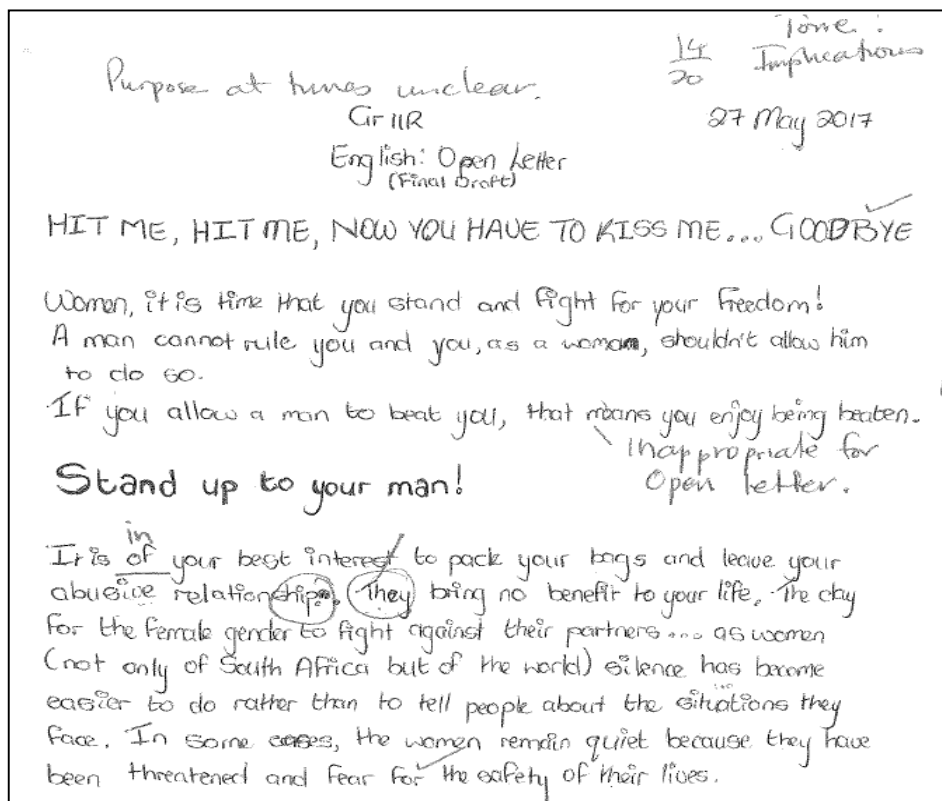 Tone :
14/20 Implications
Purpose at times unclear.
Gr 11R
27 May 2017
English: Open Letter
(Final Draft)
HIT ME, HIT ME, NOW YOU HAVE TO KISS ME... GOODBYE
Women, it is time that you stand and fight for your freedom!
A man cannot rule you and you, as a woman, shouldn't allow him
to do so.
If you allow a man to beat you, that means you enjoy being beaten.
Inappropriate for
Open Letter.
Stand up to your man!
in
It is of your best interest to pack your bags and leave your
abusive relationship. They bring no benefit to your life. The day
for the female gender to fight against their partners... as women
(not only of South Africa but of the world) silence has become
easier to do rather than to tell people about the situations they
face. In some cases, the women remain quiet because they have
been threatened and fear for the safety of their lives.